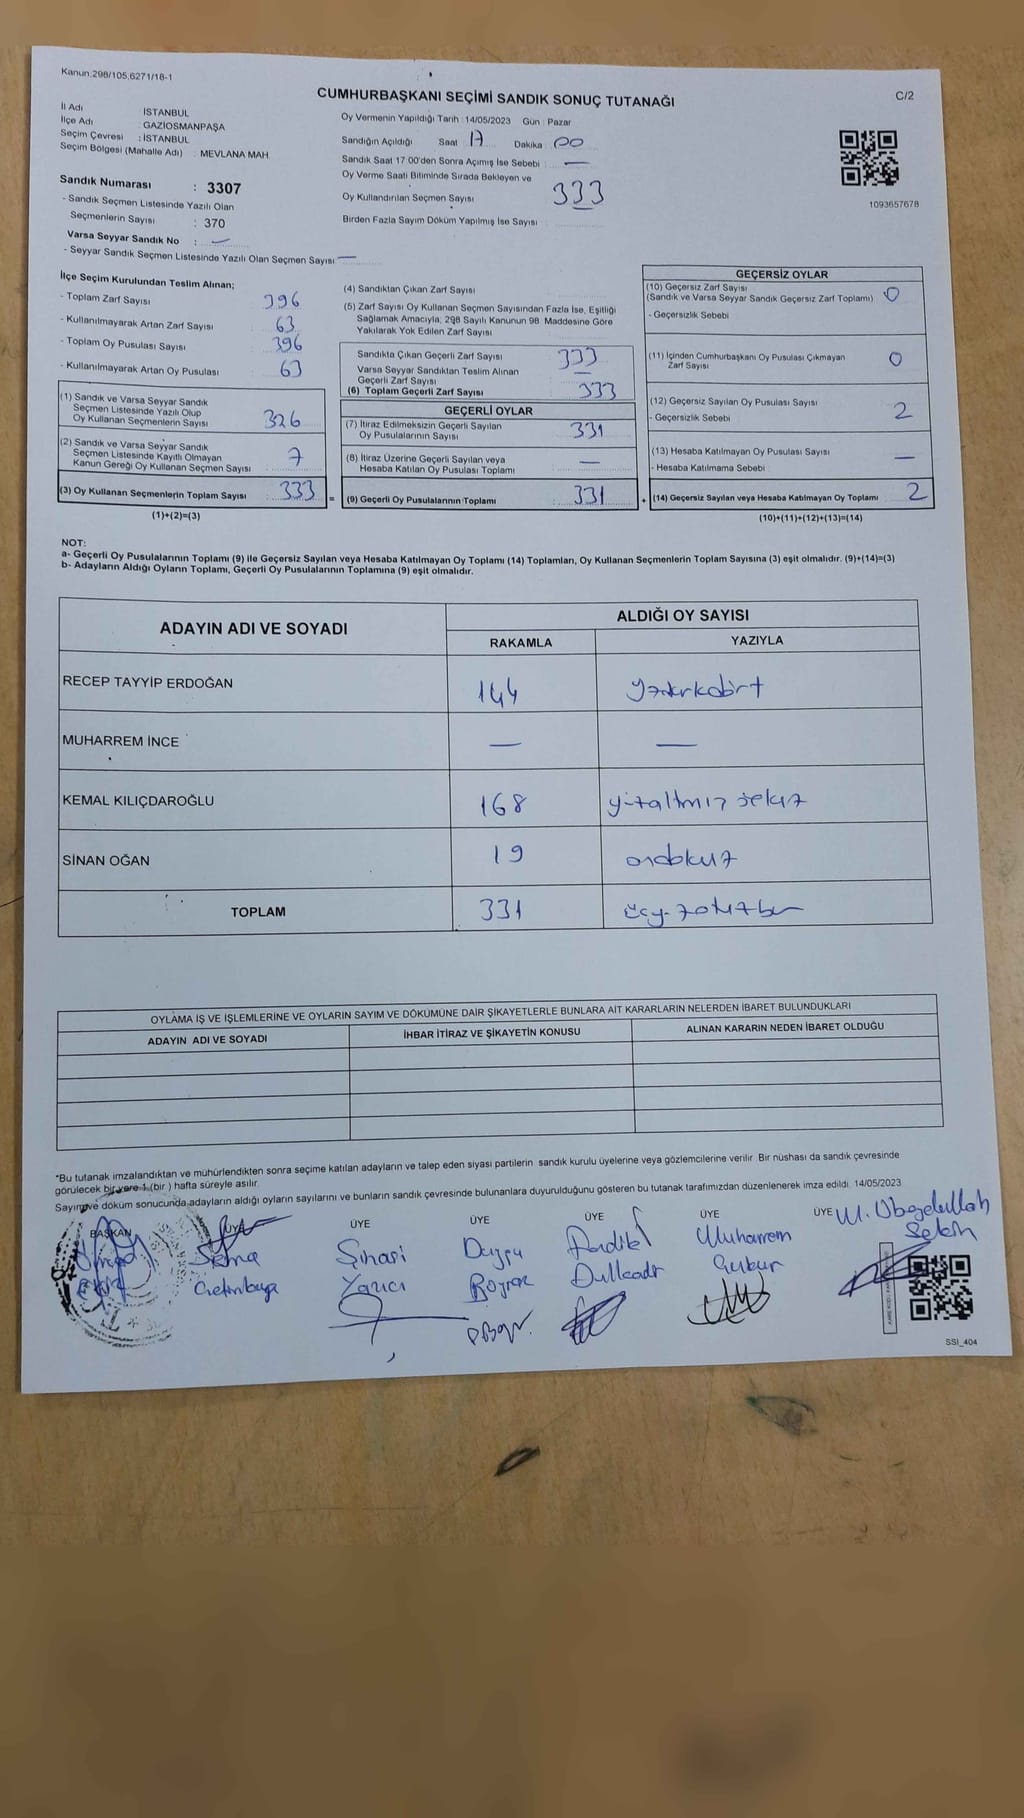 Kanun:298/105,6271/18-1
C/2
CUMHURBAŞKANI SEÇİMİ SANDIK SONUÇ TUTANAĞI
İl Adı : İSTANBUL
İlçe Adı : GAZİOSMANPAŞA
Seçim Çevresi : İSTANBUL
Seçim Bölgesi (Mahalle Adı) : MEVLANA MAH.
Sandık Numarası : 3307
- Sandık Seçmen Listesinde Yazılı Olan
Seçmenlerin Sayısı : 370
Varsa Seyyar Sandık No : —
- Seyyar Sandık Seçmen Listesinde Yazılı Olan Seçmen Sayısı —
Oy Vermenin Yapıldığı Tarih :14/05/2023 Gün : Pazar
Sandığın Açıldığı Saat 17 Dakika : 00
Sandık Saat 17 00'den Sonra Açımış İse Sebebi : —
Oy Verme Saati Bitiminde Sırada Bekleyen ve
Oy Kullandırılan Seçmen Sayısı 333
Birden Fazla Sayım Döküm Yapılmış İse Sayısı :
1093657678
İlçe Seçim Kurulundan Teslim Alınan;
- Toplam Zarf Sayısı 396
- Kullanılmayarak Artan Zarf Sayısı 63
- Toplam Oy Pusulası Sayısı 396
- Kullanılmayarak Artan Oy Pusulası 63
(1) Sandık ve Varsa Seyyar Sandık
Seçmen Listesinde Yazılı Olup
Oy Kullanan Seçmenlerin Sayısı 326
(2) Sandık ve Varsa Seyyar Sandık
Seçmen Listesinde Kayıtlı Olmayan
Kanun Gereği Oy Kullanan Seçmen Sayısı 7
(3) Oy Kullanan Seçmenlerin Toplam Sayısı 333 =
(1)+(2)=(3)
(4) Sandıktan Çıkan Zarf Sayısı
(5) Zarf Sayısı Oy Kullanan Seçmen Sayısından Fazla İse, Eşitliği
Sağlamak Amacıyla, 298 Sayılı Kanunun 98. Maddesine Göre
Yakılarak Yok Edilen Zarf Sayısı
Sandıkta Çıkan Geçerli Zarf Sayısı 333
Varsa Seyyar Sandıktan Teslim Alınan
Geçerli Zarf Sayısı —
(6) Toplam Geçerli Zarf Sayısı 333
GEÇERLİ OYLAR
(7) İtiraz Edilmeksizin Geçerli Sayılan
Oy Pusulalarının Sayısı 331
(8) İtiraz Üzerine Geçerli Sayılan veya
Hesaba Katılan Oy Pusulası Toplamı —
(9) Geçerli Oy Pusulalarının Toplamı 331 +
GEÇERSİZ OYLAR
(10) Geçersiz Zarf Sayısı
(Sandık ve Varsa Seyyar Sandık Geçersiz Zarf Toplamı) 0
- Geçersizlik Sebebi
(11) İçinden Cumhurbaşkanı Oy Pusulası Çıkmayan
Zarf Sayısı 0
(12) Geçersiz Sayılan Oy Pusulası Sayısı 2
- Geçersizlik Sebebi
(13) Hesaba Katılmayan Oy Pusulası Sayısı —
- Hesaba Katılmama Sebebi
(14) Geçersiz Sayılan veya Hesaba Katılmayan Oy Toplamı 2
(10)+(11)+(12)+(13)=(14)
NOT:
a- Geçerli Oy Pusulalarının Toplamı (9) ile Geçersiz Sayılan veya Hesaba Katılmayan Oy Toplamı (14) Toplamları, Oy Kullanan Seçmenlerin Toplam Sayısına (3) eşit olmalıdır. (9)+(14)=(3)
b- Adayların Aldığı Oyların Toplamı, Geçerli Oy Pusulalarının Toplamına (9) eşit olmalıdır.
ADAYIN ADI VE SOYADI
ALDIĞI OY SAYISI
RAKAMLA YAZIYLA
RECEP TAYYİP ERDOĞAN 144
MUHARREM İNCE — —
KEMAL KILIÇDAROĞLU 168 yüzaltmış sekiz
SİNAN OĞAN 19 ondokuz
TOPLAM 331 üçyüzotuzbir
OYLAMA İŞ VE İŞLEMLERİNE VE OYLARIN SAYIM VE DÖKÜMÜNE DAİR ŞİKAYETLERLE BUNLARA AİT KARARLARIN NELERDEN İBARET BULUNDUKLARI
ADAYIN ADI VE SOYADI İHBAR İTİRAZ VE ŞİKAYETİN KONUSU ALINAN KARARIN NEDEN İBARET OLDUĞU
*Bu tutanak imzalandıktan ve mühürlendikten sonra seçime katılan adayların ve talep eden siyasi partilerin sandık kurulu üyelerine veya gözlemcilerine verilir. Bir nüshası da sandık çevresinde
görülecek bir yere 1 (bir ) hafta süreyle asılır.
Sayım ve döküm sonucunda adayların aldığı oyların sayılarını ve bunların sandık çevresinde bulunanlara duyurulduğunu gösteren bu tutanak tarafımızdan düzenlenerek imza edildi. 14/05/2023
BAŞKAN ÜYE ÜYE ÜYE ÜYE ÜYE ÜYE
Sema
Şinasi Yazıcı
Duygu
Muharrem
M. Ubeydullah
SSİ_404